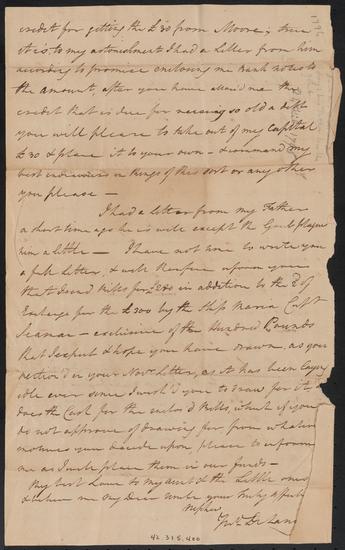 credit for getting the £30 from Moore; true
it is, to my astonishment I had a Letter from him
according to promise enclosing me Bank notes to
the amount, after you have allow'd me the
credit that is due for nursing so old a debt
you will please to take out of my Capital
£30 & place it to your own - & command my
best endeavours in things of this sort or any other
you please —
I had a letter from my Father
a short time ago he is well except the Gout plagues
him a little — I have not time to write you
a full Letter, & will therefore inform you
that I send Bills for £280 in addition to the Bl of
Exchange for the £300 by the Ship Maria Capt
Seaman - exclusive of the Hundred Pounds
that I expect & hope you have drawn, as you
mention'd in your Novr Letter, as it has been
ever since I wish'd you to draw for it, as
does the Cash for the enclos'd Bills, which if you
do not approve of drawing for from whatever
motives you decide upon, please to inform
me as I will place them in our funds —
My best Love to my aunt & the Little ones
& believe me my Dear Uncle your truly affect
Nephew
42.315.400